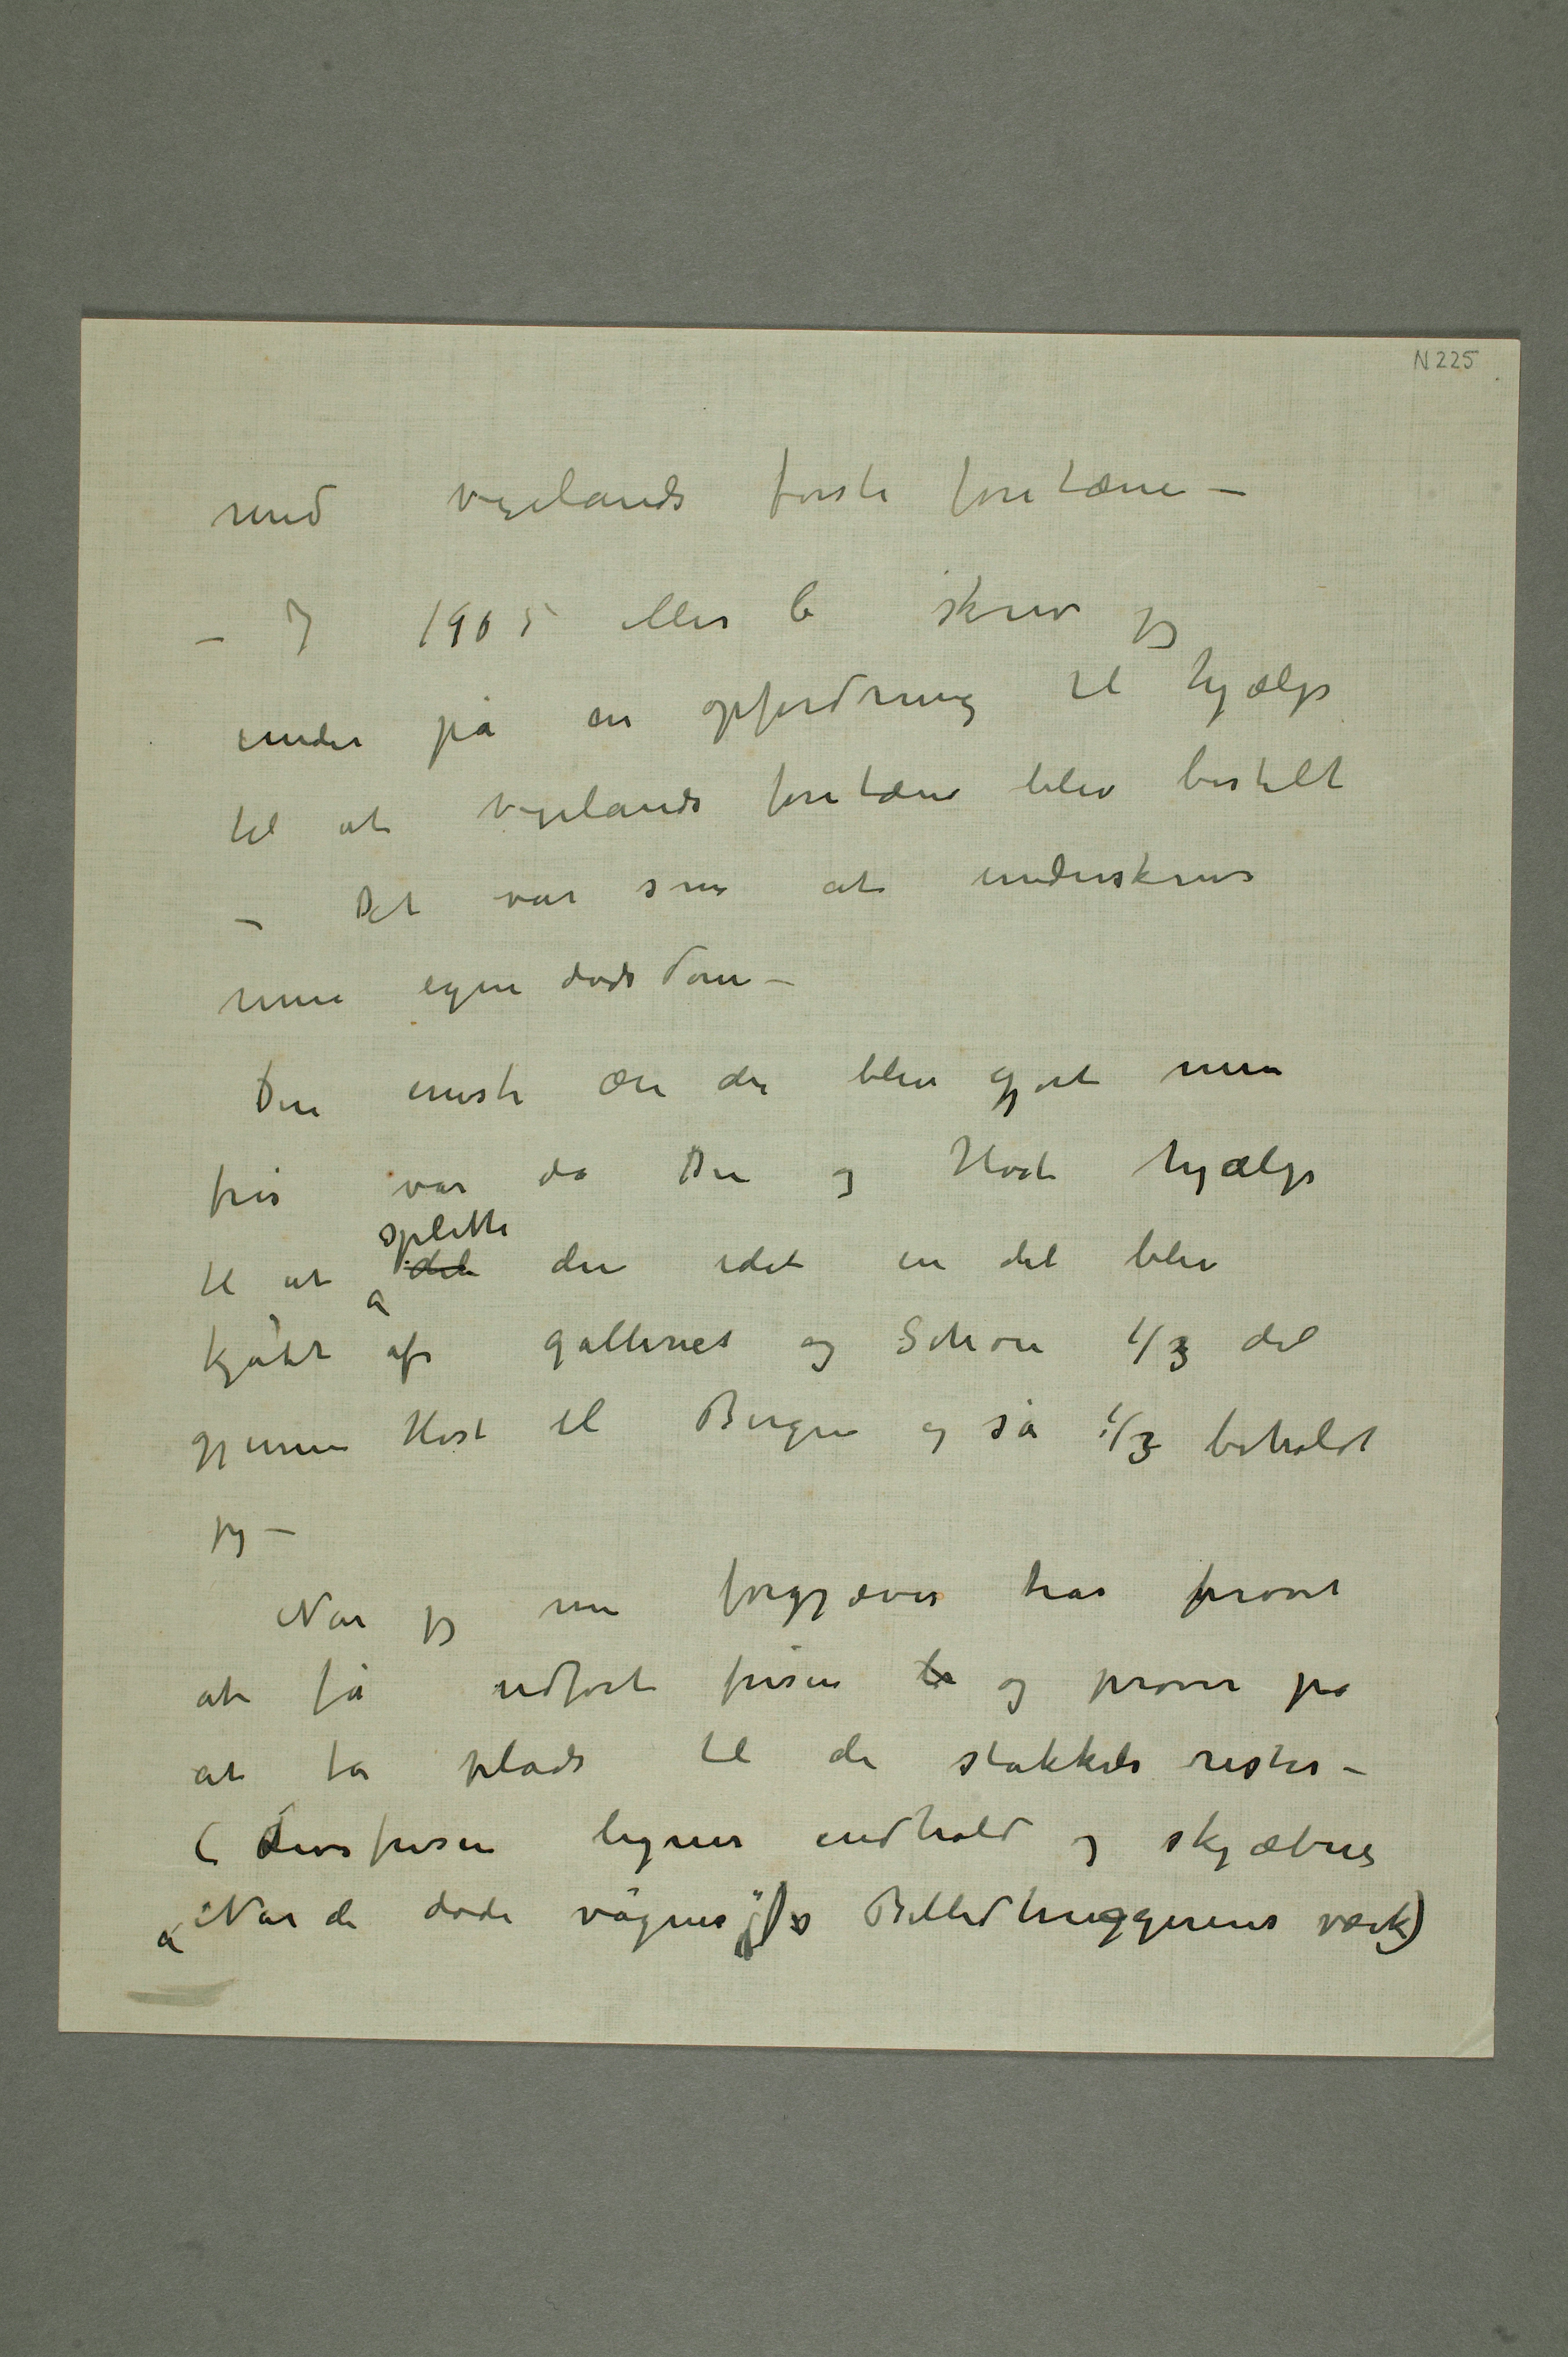 N 225
med Vigelands første fontæne –
– I 1905 eller 6 skrev jeg
under på en opfordring til hjælp
til at Vigelands fontæne blev bestilt
– Det var som at underskrive
min egen dødsdom –
Den eneste ære der blev gjort min
fris var da De og Høst hjælp
splitte
til at dele den idet en del blev
kjøbt af galleriet og Schou 1/3 del
gjennem Høst til Bergen og så 1/3 beholdt
jeg –
Når jeg nu forgjæves har prøvet
at få udført frisen og prøver på
at få plads til de stakkels rester –
(Livsfrisen ligner indhold og skjæbne
"Når de døde vågner"s Billedhuggerens værk)